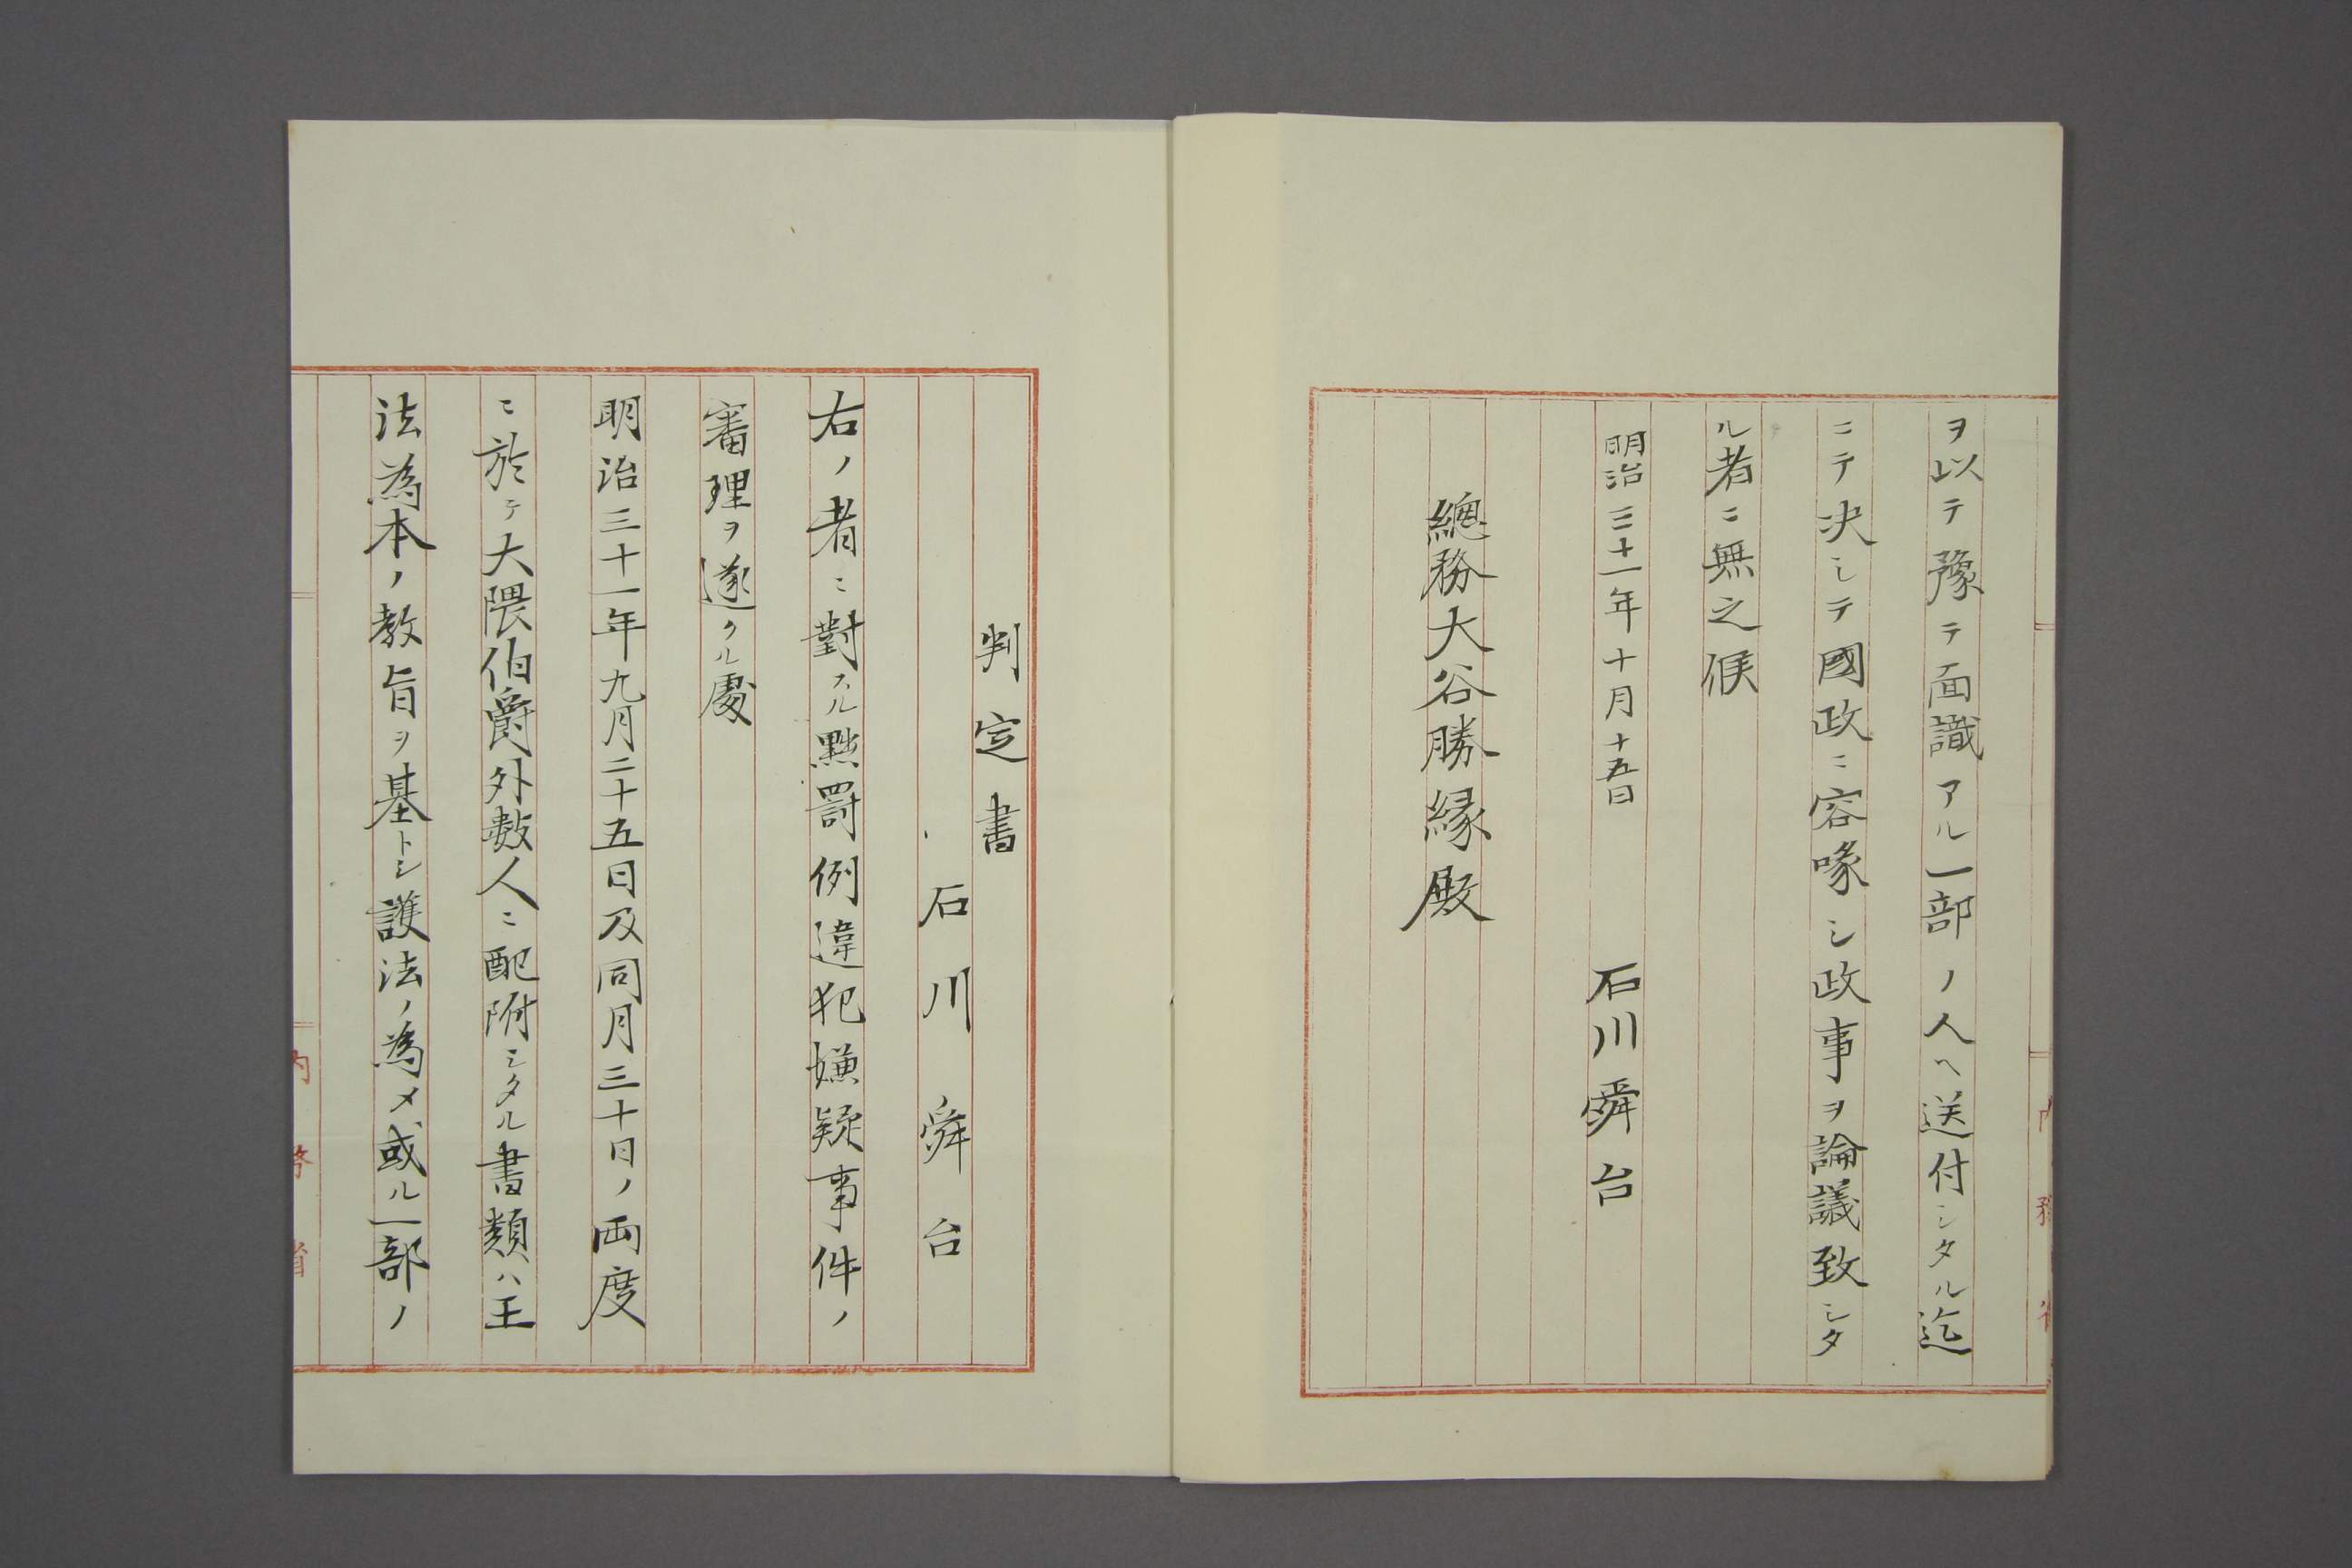 ヲ以テ豫テ面識アル一部ノ人ヘ送付シタル迄
ニテ決シテ國政ニ容喙シ政事ヲ論議致シタ
ル者ニ無之候
明治三十一年十月十五日 石川舜台
總務大谷勝縁殿
判定書
石川舜台
右ノ者ニ對スル黜罰例違犯嫌疑事件ノ
審理ヲ遂クル處
明治三十一年九月二十五日及同月三十日ノ両度
ニ於テ大隈伯爵外数人ニ配附シタル書類ハ王
法為本ノ教旨ヲ基トシ護法ノ為メ或ル一部ノ
内務省